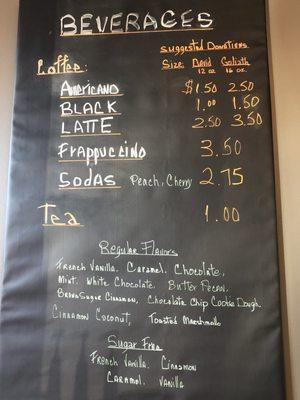 BEVERAGES
Suggested Donations
Coffee: Size: David Goliath
12 oz 16 oz.
Americano $1.50 2.50
BLACK 1.00 1.50
LATTE 2.50 3.50
Frappuccino 3.50
Sodas Peach, Cherry 2.75
Tea 1.00
Regular Flavors
French Vanilla. Caramel. Chocolate,
Mint. White Chocolate. Butter Pecan.
Brown Sugar Cinnamon, Chocolate Chip Cookie Dough.
Cinnamon Coconut, Toasted Marshmallo
Sugar Free
French Vanilla. Cinnamon
Caramel. Vanilla